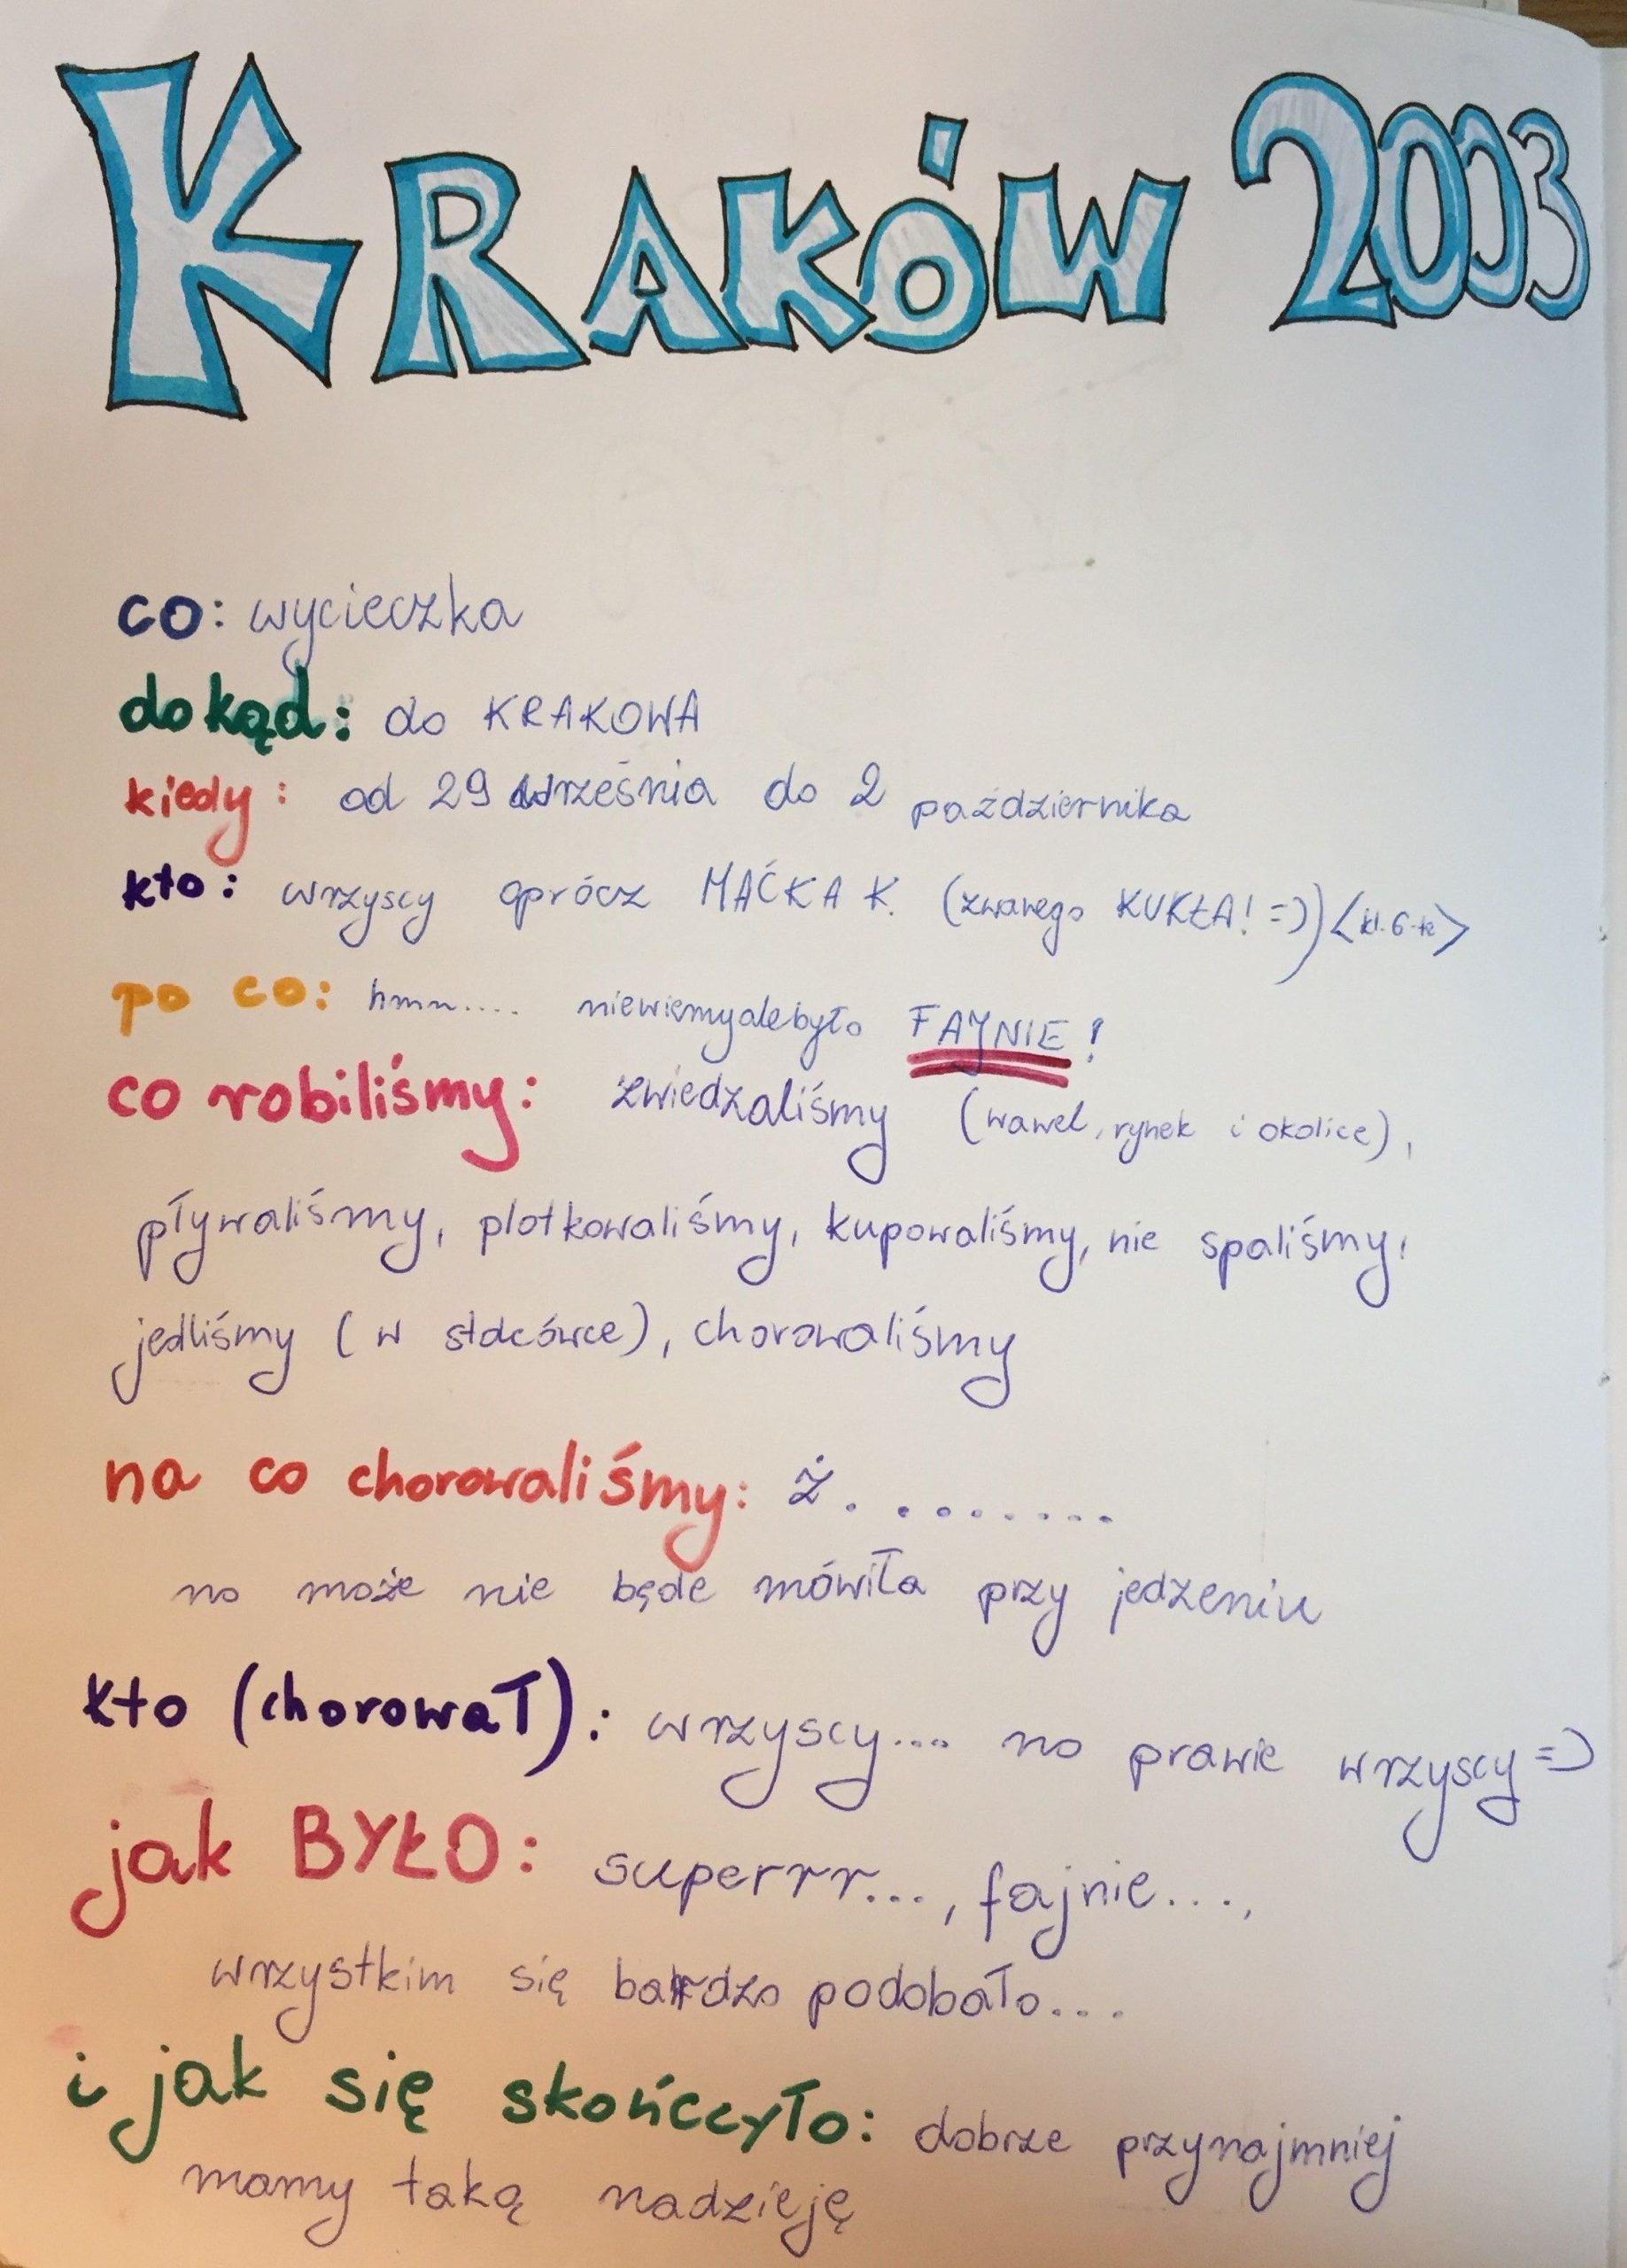 KRAKÓW 2003
co: wycieczka
dokąd: do KRAKOWA
kiedy: od 29 września do 2 października
kto: wrzyscy oprócz MAĆKA K. (zwanego KUKŁA! =)) <kl. 6-te>
po co: hmn.... niewiemyalebyło FAJNIE!
co robiliśmy: zwiedzaliśmy (wawel, rynek i okolice),
pływaliśmy, plotkowaliśmy, kupowaliśmy, nie spaliśmy,
jedliśmy (w stołcówce), chorowaliśmy
na co chorowaliśmy: ż.........
no może nie będe mówiła przy jedzeniu
kto (chorował): wrzyscy... no prawie wrzyscy =)
jak BYŁO: superrr..., fajnie...,
wrzystkim się bardzo podobało...
i jak się skończyło: dobrze przynajmniej
mamy taką nadzieję